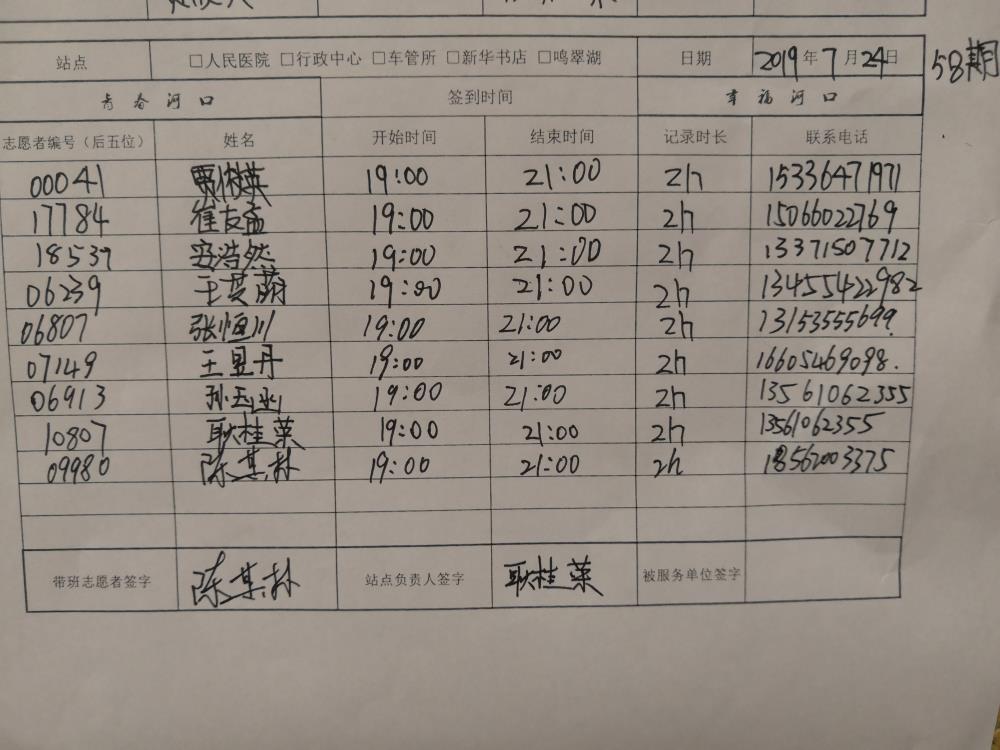 站点 □人民医院 □行政中心 □车管所 □新华书店 □鸣翠湖 日期 2019年7月24日 58期
青春河口 签到时间 幸福河口
志愿者编号（后五位） 姓名 开始时间 结束时间 记录时长 联系电话
00041 19:00 21:00 2h 15336471971
17784 崔友孟 19:00 21:00 2h 15066022769
18537 安浩然 19:00 21:00 2h 13371507712
06239 王 萌 19:00 21:00 2h 13455422982
06807 张恒川 19:00 21:00 2h 13153555699.
07149 王昱丹 19:00 21:00 2h 16605469098.
06913 孙玉 19:00 21:00 2h 13561062355
10807 耿桂菜 19:00 21:00 2h 13561062355
09980 陈其朴 19:00 21:00 2h 18562003375
带班志愿者签字 陈其朴 站点负责人签字 耿桂菜 被服务单位签字